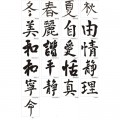 冬春夏秋
美麗自由
和諧愛情
和平恬靜
寧靜真理
命